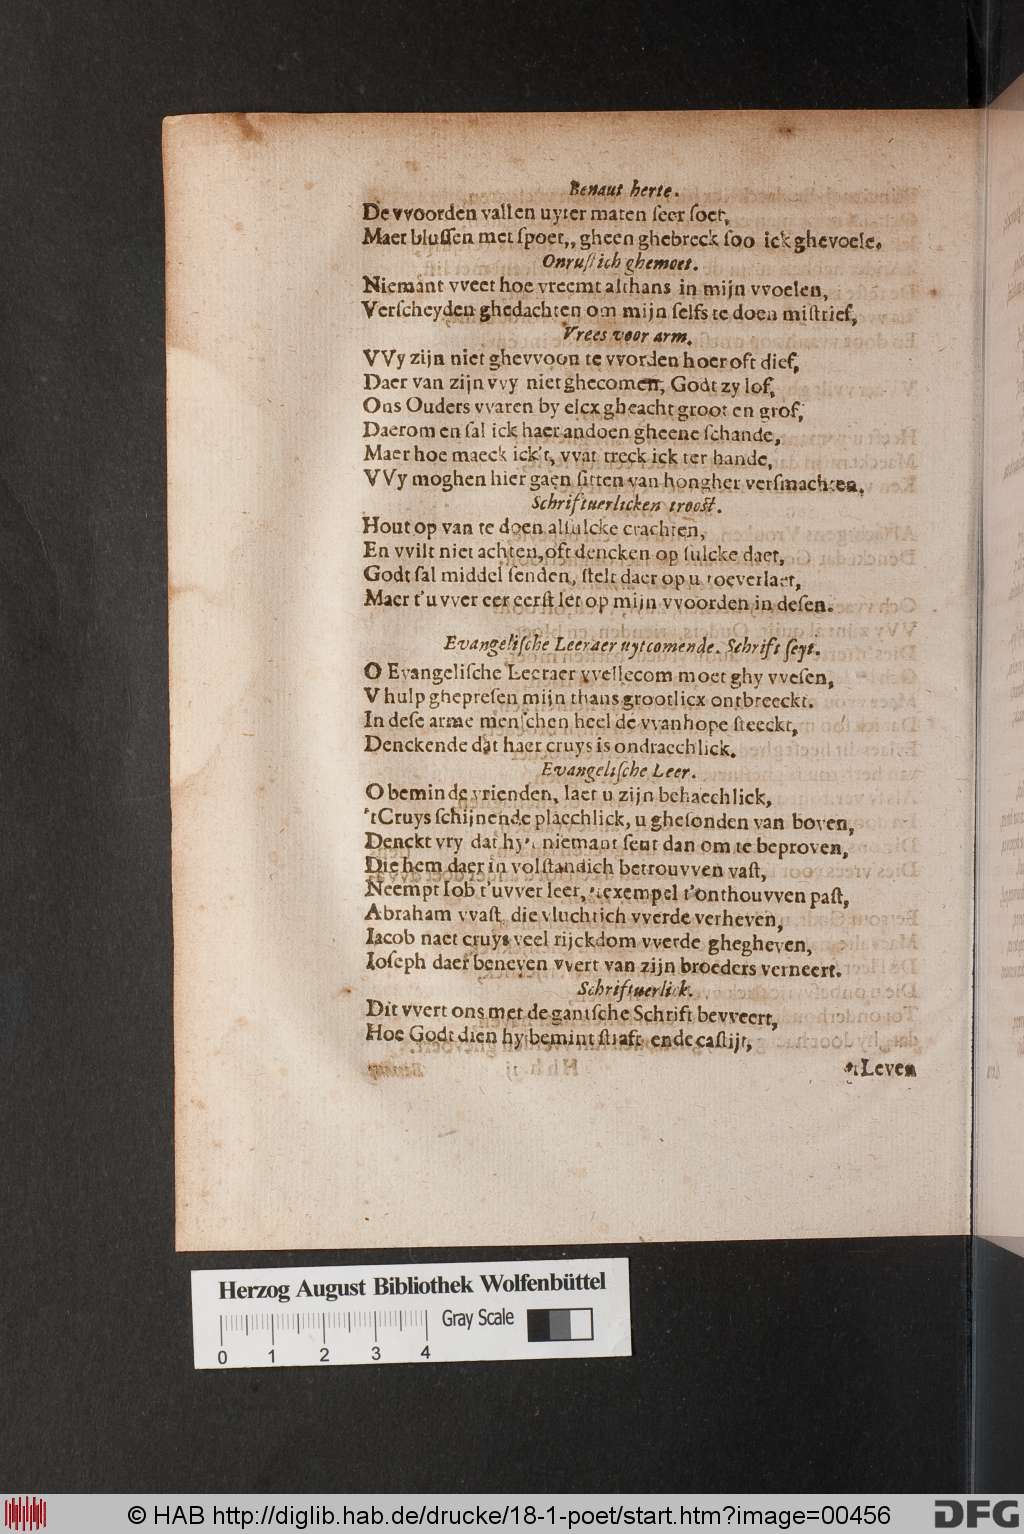 Benaut herte.
De vvoorden vallen uyter maten seer soet,
Maer blussen met spoet,, gheen ghebreck soo ick ghevoele.
Onrustich ghemoet.
Niemant vveet hoe vreemt althans in mijn vvoelen,
Verscheyden ghedachten om mijn selfs te doen mistrief,
Vrees voor arm.
VVy zijn niet ghevvoon te vvorden hoer oft dief,
Daer van zijn vvy niet ghecomen, Godt zy lof,
Ons Ouders vvaren by elcx gheacht groot en grof,
Daerom en sal ick haer andoen gheene schande,
Maer hoe maeck ick't, vvat treck ick ter hande,
VVy moghen hier gaen sitten van hongher versmachten.
Schriftuerlicken troost.
Hout op van te doen alsulcke crachten,
En vvilt niet achten, oft dencken op sulcke daet,
Godt sal middel senden, stelt daer op u toeverlaet,
Maer t'uvver eer eerst let op mijn vvoorden in desen.
Evangelische Leeraer uytcomende. Schrift seyt.
O Evangelische Leeraer vvellecom moet ghy vvesen,
V hulp ghepresen mijn thans grootlicx ontbreeckt.
In dese arme menschen heel de vvanhope steeckt,
Denckende dat haer cruys is ondraechlick.
Evangelische Leer.
O beminde vrienden, laet u zijn behaechlick,
'tCruys schijnende plaechlick, u ghesonden van boven,
Denckt vry dat hy't niemant sent dan om te beproven,
Die hem daer in volstandich betrouvven vast,
Neempt Iob t'uvver leer, 'texempel t'onthouvven past,
Abraham vvast die vluchtich vverde verheven,
Iacob naet cruys veel rijckdom vverde ghegheven,
Ioseph daer beneven vvert van zijn broeders verneert.
Schriftuerlick.
Dit vvert ons met de gantsche Schrift bevveert,
Hoe Godt dien hy bemint straft ende castijt,
'tLeven
Herzog August Bibliothek Wolfenbüttel
Gray Scale
0 1 2 3 4
© HAB http://diglib.hab.de/drucke/18-1-poet/start.htm?image=00456
DFG